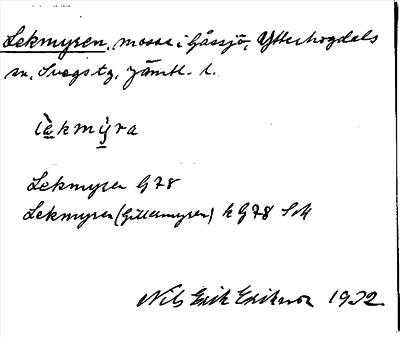 Lekmyren, mosse i Gåssjö, Ytterhogdals
sn, Svegs tg, Jämtl. l.
lèkmỳra
Lekmyren G78
Lekmyren (Gittermyren) k G78 SoM
Nils Erik Eriksson 1932